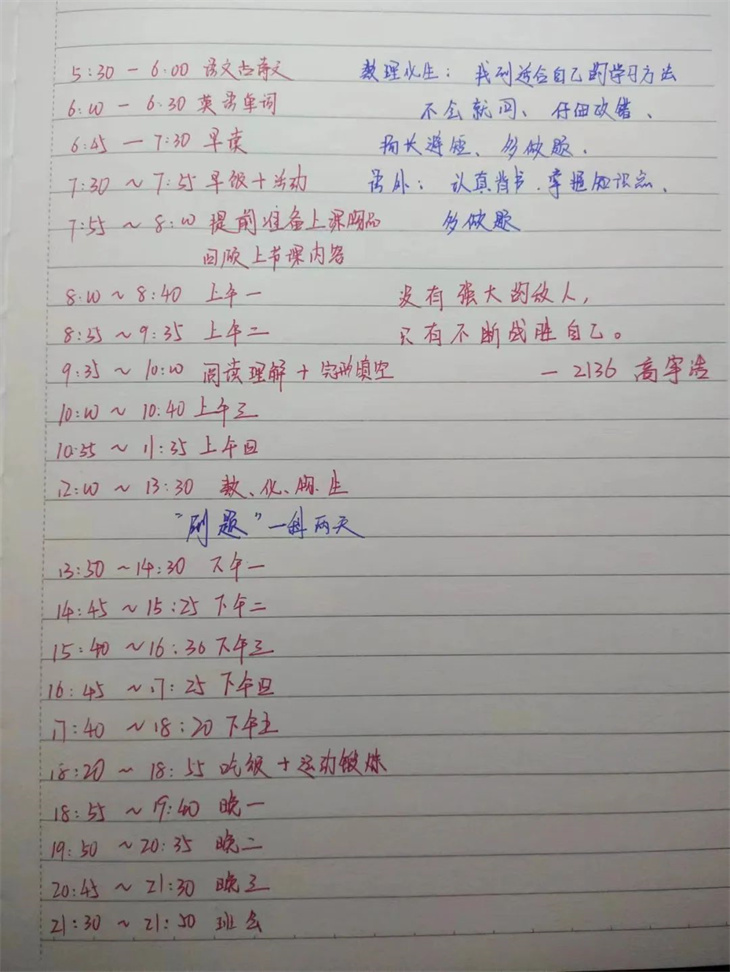 5:30 — 6:00 语文古诗文 数理化生：找到适合自己的学习方法
6:10 — 6:30 英语单词 不会就问、仔细改错、
6:45 — 7:30 早读 扬长避短、多做题、
7:30 ~ 7:55 早饭+活动 语外：认真背书、掌握知识点、
7:55 ~ 8:10 提前准备上课物品 多做题
回顾上节课内容
8:10 ~ 8:40 上午一 没有强大的敌人，
8:55 ~ 9:35 上午二 只有不断战胜自己。
9:35 ~ 10:10 阅读理解+完形填空 — 2136 高宇浩
10:10 ~ 10:40 上午三
10:55 ~ 11:35 上午四
12:10 ~ 13:30 数、化、物、生
“刷题”一科两天
13:50 ~ 14:30 下午一
14:45 ~ 15:25 下午二
15:40 ~ 16:30 下午三
16:45 ~ 17:25 下午四
17:40 ~ 18:20 下午五
18:20 ~ 18:55 吃饭+运动锻炼
18:55 ~ 19:40 晚一
19:50 ~ 20:35 晚二
20:45 ~ 21:30 晚三
21:30 ~ 21:50 班会